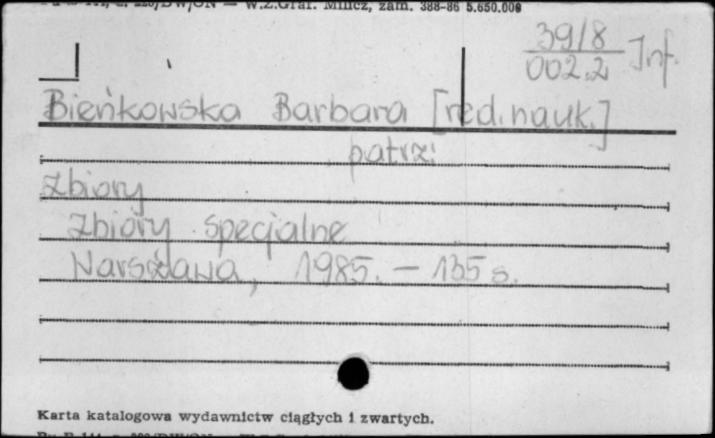 W.Z.Graf. Milicz, zam. 388-86 5.650.000
39/8
002.2 Inf.
Bieńkowska Barbara [red. nauk.]
patrz:
Zbiory
Zbiory specjalne
Warszawa, 1985. – 135 s.
Karta katalogowa wydawnictw ciągłych i zwartych.